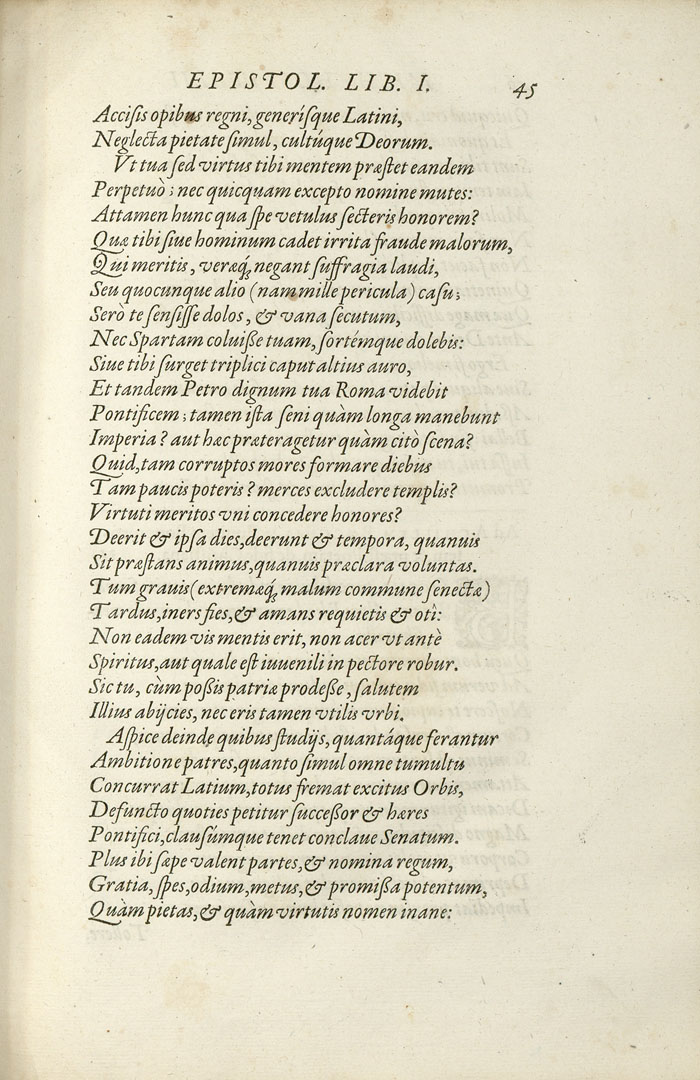 EPISTOL. LIB. I. 45
Accisis opibus regni, generísque Latini,
Neglecta pietate simul, cultúque Deorum.
Vt tua sed virtus tibi mentem præstet eandem
Perpetuò; nec quicquam excepto nomine mutes:
Attamen hunc qua spe vetulus secteris honorem?
Quæ tibi siue hominum cadet irrita fraude malorum,
Qui meritis, veræq́; negant suffragia laudi,
Seu quocunque alio (nam mille pericula) casu;
Serò te sensisse dolos, & vana secutum,
Nec Spartam coluiße tuam, sortémque dolebis:
Siue tibi surget triplici caput altius auro,
Et tandem Petro dignum tua Roma videbit
Pontificem; tamen ista seni quàm longa manebunt
Imperia? aut hæc præteragetur quàm citò scena?
Quid, tam corruptos mores formare diebus
Tam paucis poteris? merces excludere templis?
Virtuti meritos vni concedere honores?
Deerit & ipsa dies, deerunt & tempora, quanuis
Sit præstans animus, quanuis præclara voluntas.
Tum grauis (extremæq́; malum commune senectæ)
Tardus, iners fies, & amans requietis & otî:
Non eadem vis mentis erit, non acer vt antè
Spiritus, aut quale est iuuenili in pectore robur.
Sic tu, cùm poßis patriæ prodeße, salutem
Illius abijcies, nec eris tamen vtilis vrbi.
Aspice deinde quibus studijs, quantáque ferantur
Ambitione patres, quanto simul omne tumultu
Concurrat Latium, totus fremat excitus Orbis,
Defuncto quoties petitur succeßor & hæres
Pontifici, clausúmque tenet conclaue Senatum.
Plus ibi sæpe valent partes, & nomina regum,
Gratia, spes, odium, metus, & promißa potentum,
Quàm pietas, & quàm virtutis nomen inane: